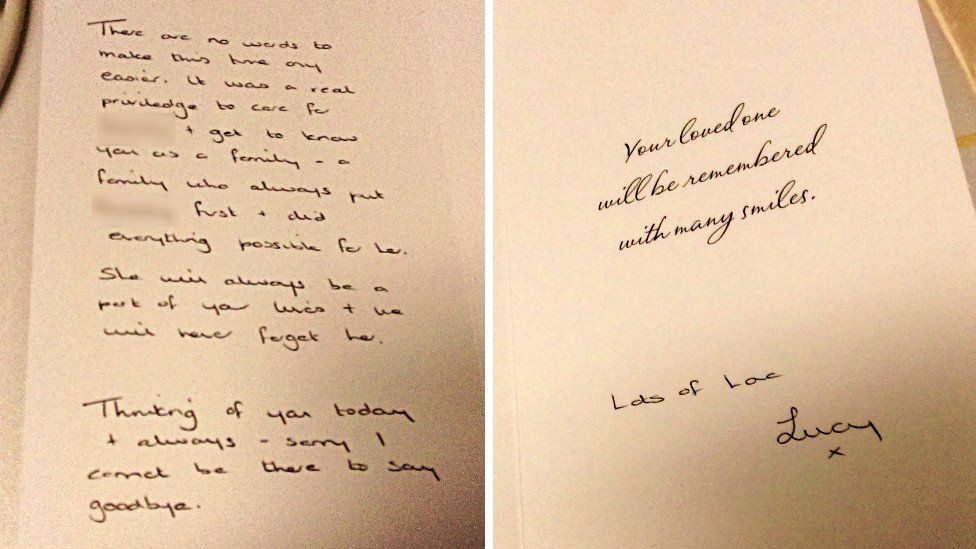 There are no words to
make this time any
easier. It was a real
priviledge to care for
+ get to know
you as a family - a
family who always put
first + did
everything possible for her.
She will always be a
part of your lives + we
will never forget her.
Thinking of you today
+ always - sorry I
cannot be there to say
goodbye.
Your loved one
will be remembered
with many smiles.
Lots of Love
Lucy
x